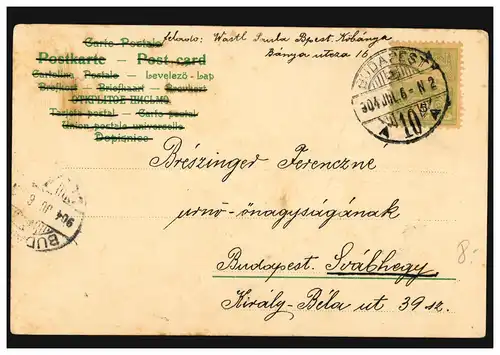 Carte Postale
feladó: Wastl Gyula Bpest. Kőbánya
Bánya utcza 16
Postkarte — Post card
Cartolina Postale — Levelező-Lap
Brefkort — Briefkaart — Brevkort
ОТКРЫТОЕ ПИСЬМО
Tarjeta postal — Carta postal
Union postale universelle
Dopisnice
BUDAPEST
904 JUL. 6 - N 2
10
A A
Breszinger Ferenczne
úrnő-önagyságának
BUD
904 JUL 6
Budapest. Svábhegy
Király-Béla ut 39 sz.
8.-